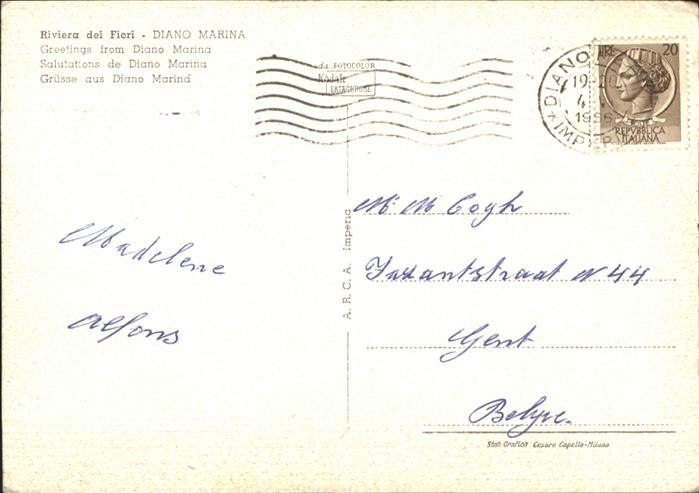 Riviera dei Fiori - DIANO MARINA
Greetings from Diano Marina
Salutations de Diano Marina
Grüsse aus Diano Marina
da FOTOCOLOR
Kodak
EKTACHROME
DIANO
19
4
1956
IMPER
LIRE 20
REPVBBLICA
ITALIANA
A. R. C. A. Imperia
Madelene
Alfons
Mr M Cogh
straat N 44
Gent
Belge.
Stab. Grafico Cesare Capello-Milano